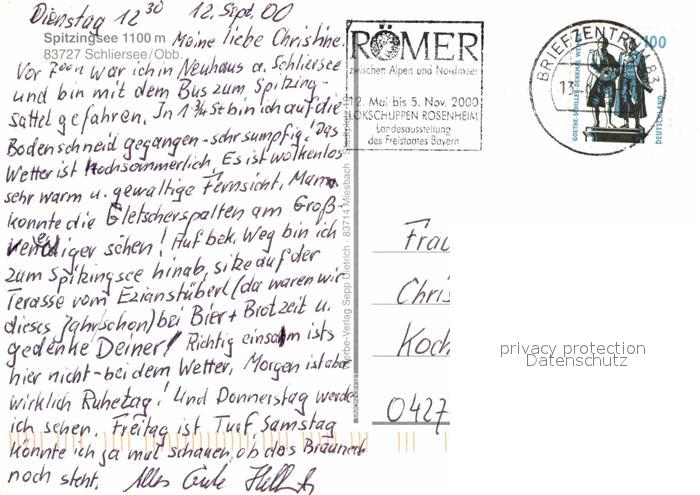 Dienstag 12 30 12. Sept. 00
Spitzingsee 1100 m Meine liebe Christine.
83727 Schliersee/Obb.
Vor war ich in Neuhaus a. Schliersee
und bin mit dem Bus zum Spitzing-
sattel gefahren. In 1 3/4 St bin ich auf die
Bodenschneid gegangen - sehr sumpfig! Das
Wetter ist hochsommerlich. Es ist wolkenlos
sehr warm u. gewaltige Fernsicht. Man
konnte die Gletscherspalten am Groß-
venediger sehen! Auf bek. Weg bin ich
zum Spitzingsee hinab, sitze auf der
Terasse vom Ezianstüberl (da waren wir
dieses Jahr schon) bei Bier + Brotzeit u.
gedenke Deiner! Richtig einsam ists
hier nicht - bei dem Wetter. Morgen ist aber
wirklich Ruhetag! Und Donnerstag werde
ich sehen. Freitag ist Turf. Samstag
könnte ich ja mal schauen, ob das Bräuneck
noch steht. Alles Gute
Werbe-Verlag Sepp Dietrich · 83714 Miesbach
RÖMER
zwischen Alpen und Nordmeer
12. Mai bis 5. Nov. 2000
LOKSCHUPPEN ROSENHEIM
Landesausstellung
des Freistaates Bayern
BRIEFZENTRUM 83
13
100
GOETHE-SCHILLER-DENKMAL WEIMAR
DEUTSCHLAND
Frau
Chris
Koch
0427
privacy protection
Datenschutz